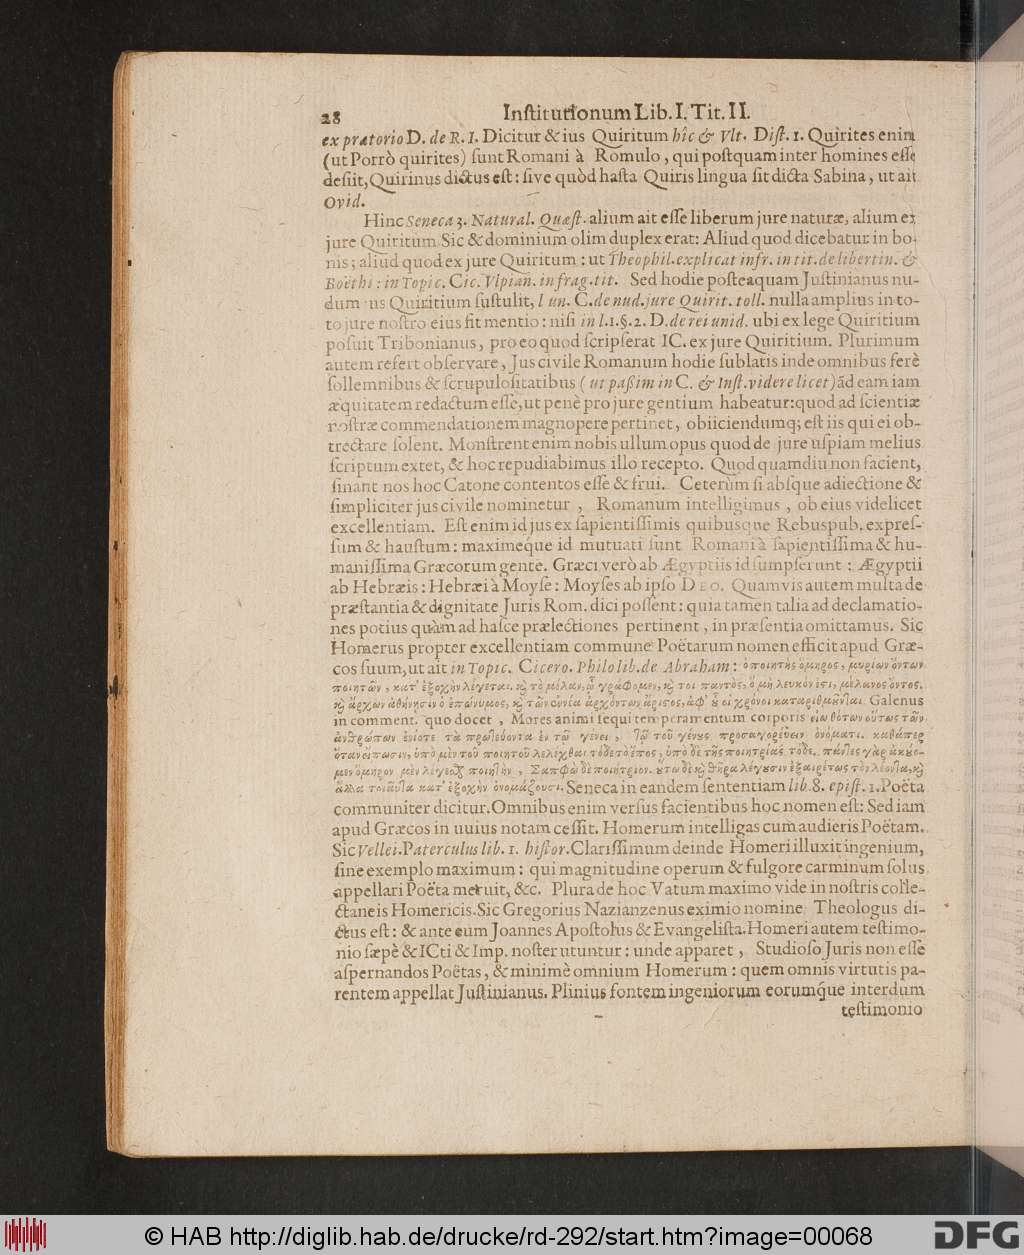 28 Institutionum Lib. I. Tit. II.
ex prætorio D. de R. I. Dicitur & ius Quiritum hîc & Vlt. Dist. 1. Quirites enim
(ut Porrò quirites) sunt Romani à Romulo, qui postquam inter homines esse
desiit, Quirinus dictus est: sive quòd hasta Quiris lingua sit dicta Sabina, ut ait
Ovid.
Hinc Seneca 3. Natural. Quæst. alium ait esse liberum jure naturæ, alium ex
jure Quiritum Sic & dominium olim duplex erat: Aliud quod dicebatur in bo-
nis; aliud quod ex jure Quiritum: ut Theophil. explicat infr. in tit. de libertin. &
Boëthi: in Topic. Cic. Vlpian. in frag. tit. Sed hodie posteaquam Justinianus nu-
dum ius Quiritium sustulit, l un. C. de nud. jure Quirit. toll. nulla amplius in to-
to jure nostro eius fit mentio: nisi in l. 1. §. 2. D. de rei unid. ubi ex lege Quiritium
posuit Tribonianus, pro eo quod scripserat IC. ex jure Quiritium. Plurimum
autem refert observare, Jus civile Romanum hodie sublatis inde omnibus ferè
sollemnibus & scrupulositatibus ( ut paßim in C. & Inst. videre licet) ad eam iam
æquitatem redactum esse, ut penè pro jure gentium habeatur: quod ad scientiæ
nostræ commendationem magnopere pertinet, obiiciendumq; est iis qui ei ob-
trectare solent. Monstrent enim nobis ullum opus quod de jure uspiam melius
scriptum extet, & hoc repudiabimus illo recepto. Quod quamdiu non facient,
sinant nos hoc Catone contentos esse & frui. Ceterùm si absque adiectione &
simpliciter jus civile nominetur, Romanum intelligimus, ob eius videlicet
excellentiam. Est enim id jus ex sapientissimis quibusque Rebuspub. expres-
sum & haustum: maximeque id mutuati sunt Romani à sapientissima & hu-
manissima Græcorum gente. Græci verò ab Ægyptiis id sumpserunt: Ægyptii
ab Hebræis: Hebræi à Moyse: Moyses ab ipso DEO. Quamvis autem multa de
præstantia & dignitate Juris Rom. dici possent: quia tamen talia ad declamatio-
nes potius quàm ad hasce prælectiones pertinent, in præsentia omittamus. Sic
Homerus propter excellentiam commune Poëtarum nomen efficit apud Græ-
cos suum, ut ait in Topic. Cicero. Philo lib. de Abraham: ὁ ποιητὴς ὅμηρος, μυρίων ὄντων
ποιητῶν, κατ' ἐξοχὴν λέγεται. κỳ τὸ μέλαν, ᾧ γράφομεν, κỳ τοι παντὸς, ὃ μὴ λευκόν ἐςι, μέλανος ὄντος.
κỳ ἄρχων ἀθήνησιν ὁ ἐπώνυμος, κỳ τῶν ἐννέα ἀρχόντων ἄριςος, ἀφ' οὗ οἱ χρόνοι καταριθμοῦνται. Galenus
in comment. quo docet, Mores animi sequi temperamentum corporis εἰωθότων οὕτως τῶν
ἀνθρώπων ἐνίοτε τὰ πρωτεύοντα ἐν τῷ γένει, τῷ τοῦ γένους προσαγορεύειν ὀνόματι. καθάπερ
ὅταν εἴπωσιν, ὑπὸ μὲν τοῦ ποιητοῦ λελέχθαι τόδε τὸ ἔπος, ὑπὸ δὲ τῆς ποιητρίας τόδε. πάντες γὰρ ἀκούο-
μεν ὅμηρον μὲν λέγεσθαι ποιητὴν, Σαπφὼ δὲ ποιήτριαν. οὕτω δὲ κỳ θῆρα λέγουσιν ἐξαιρέτως τὸν λέοντα, κỳ
ἄλλα τοιαῦτα κατ' ἐξοχὴν ὀνομάζουσι. Seneca in eandem sententiam lib. 8. epist. 1. Poëta
communiter dicitur. Omnibus enim versus facientibus hoc nomen est: Sed iam
apud Græcos in uuius notam cessit. Homerum intelligas cum audieris Poëtam.
Sic Vellei. Paterculus lib. 1. histor. Clarissimum deinde Homeri illuxit ingenium,
sine exemplo maximum: qui magnitudine operum & fulgore carminum solus
appellari Poëta meruit, &c. Plura de hoc Vatum maximo vide in nostris colle-
ctaneis Homericis. Sic Gregorius Nazianzenus eximio nomine Theologus di-
ctus est: & ante eum Joannes Apostolus & Evangelista. Homeri autem testimo-
nio sæpè & ICti & Imp. noster utuntur: unde apparet, Studioso Juris non esse
aspernandos Poëtas, & minimè omnium Homerum: quem omnis virtutis pa-
rentem appellat Justinianus. Plinius fontem ingeniorum eorumque interdum
testimonio
© HAB http://diglib.hab.de/drucke/rd-292/start.htm?image=00068
DFG